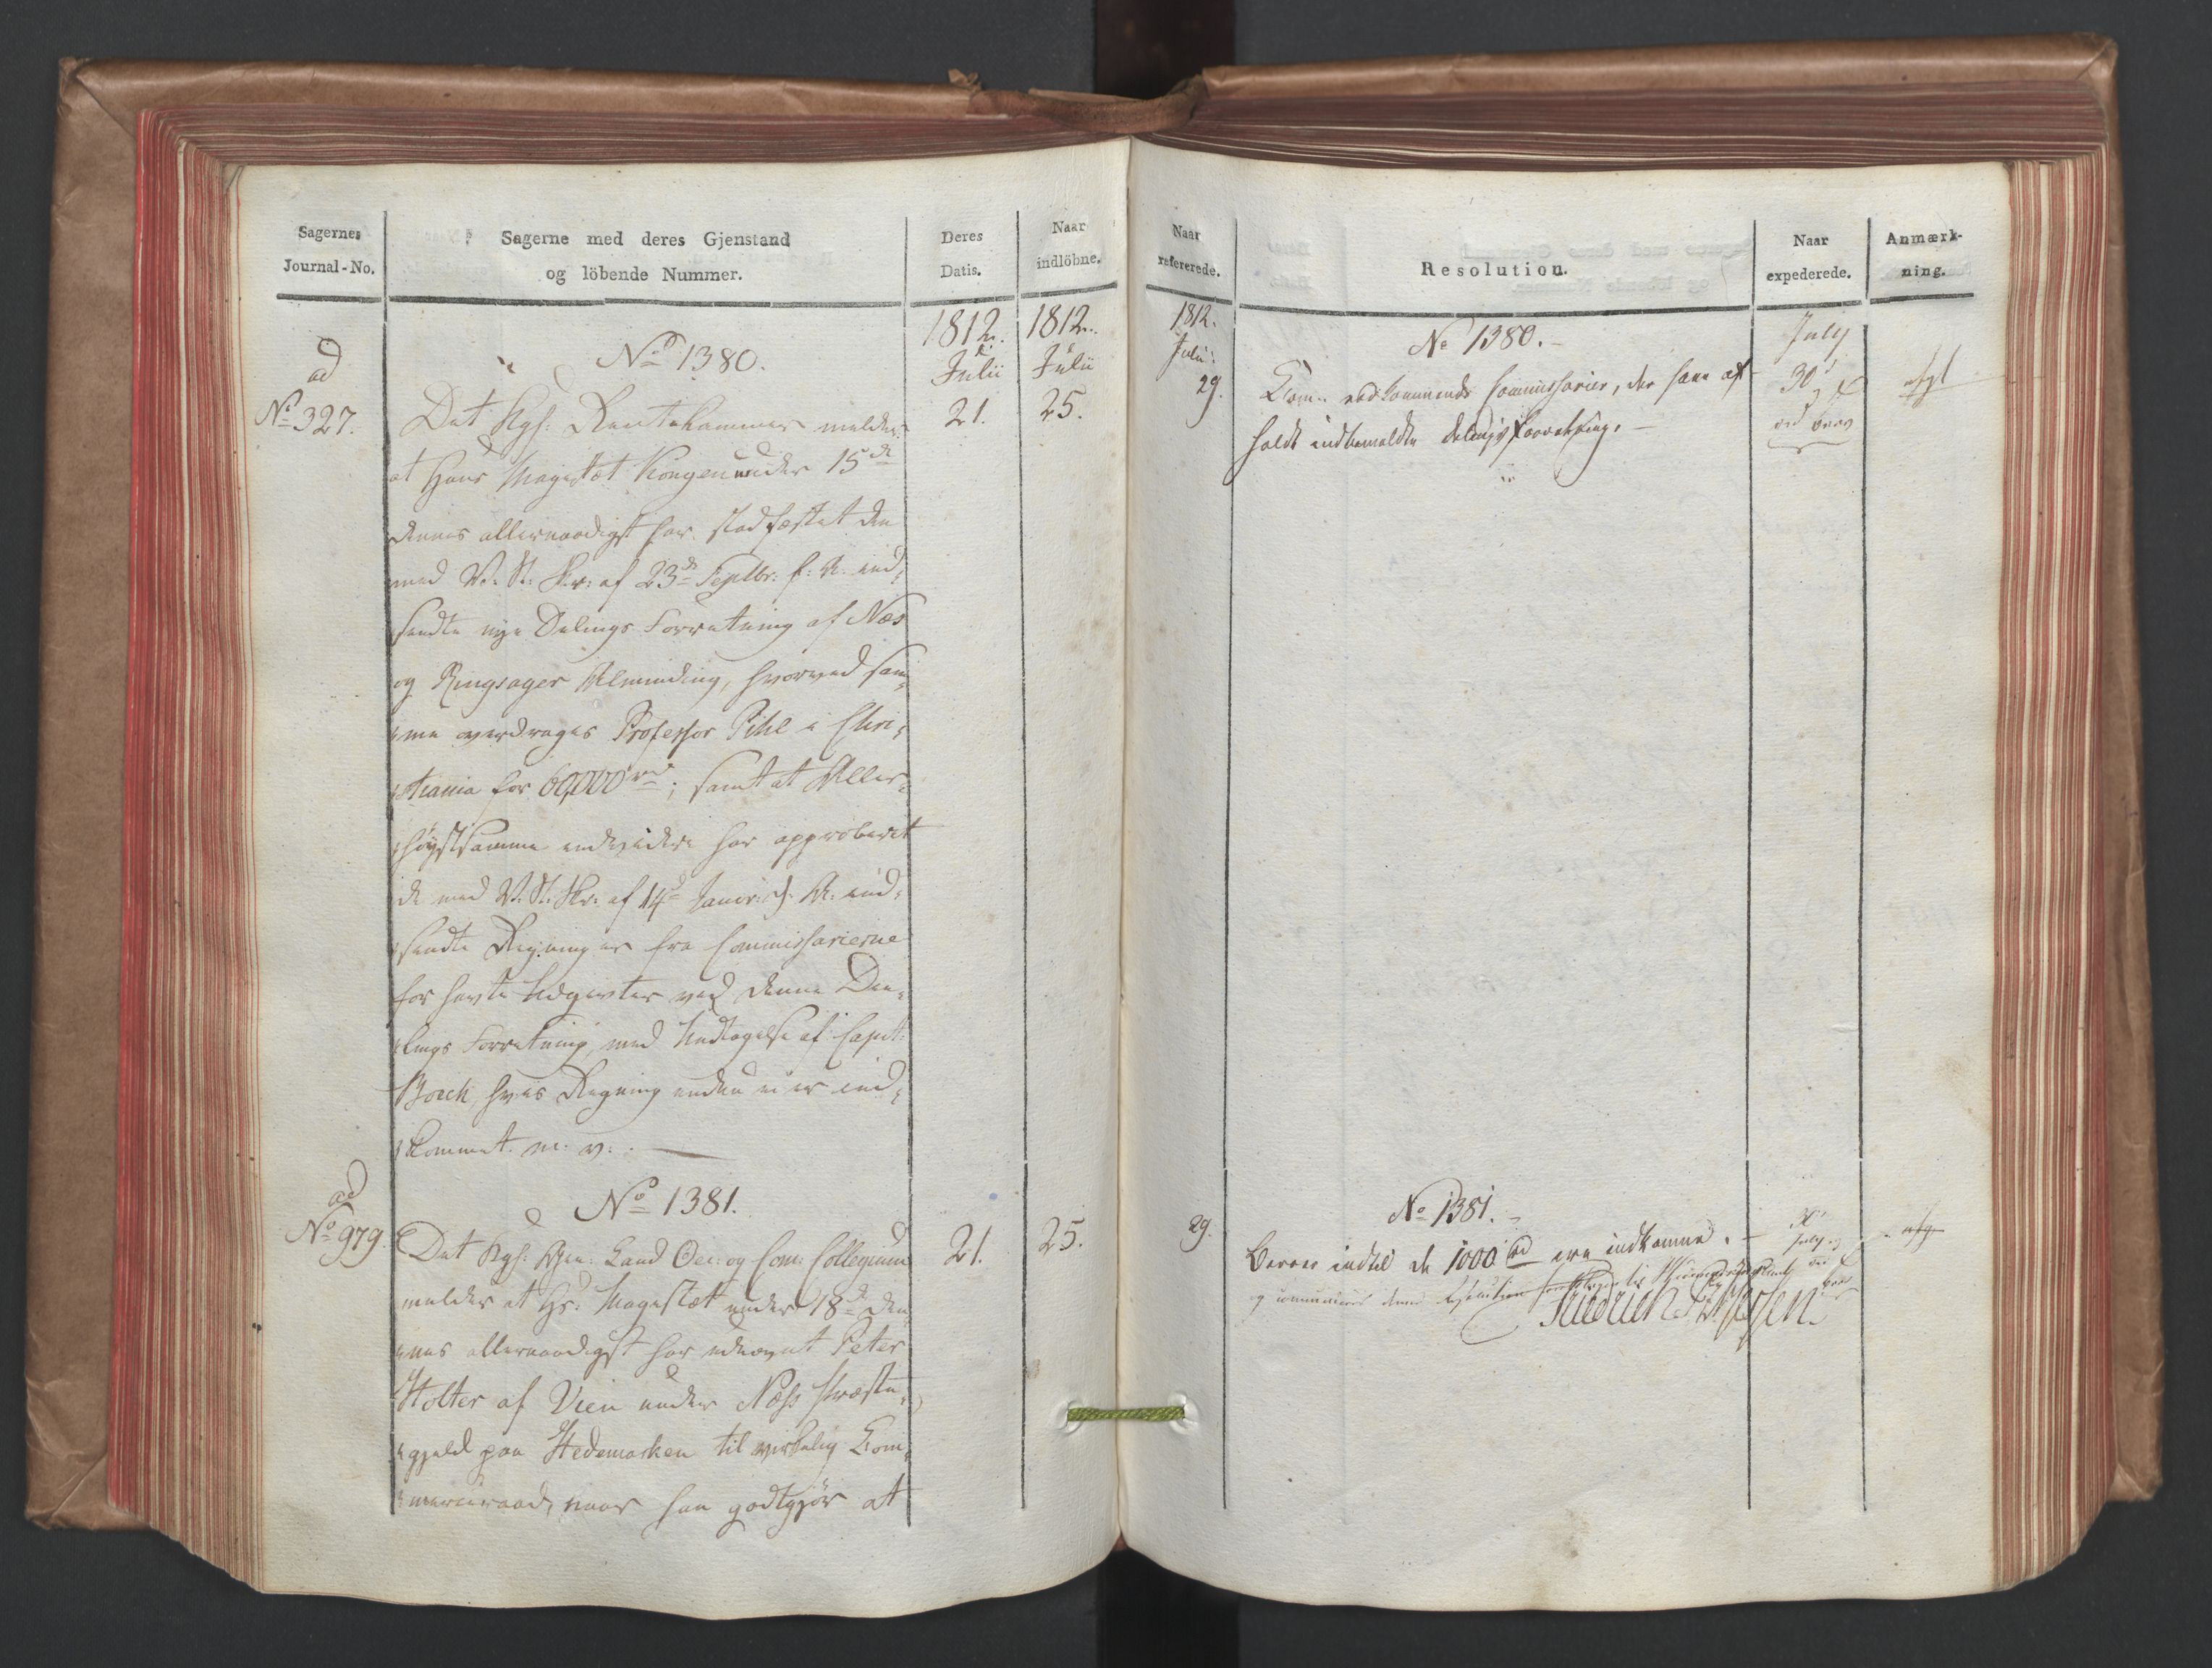 Sagernes
Journal-No.
Sagerne med deres Gjenstand
og löbende Nummer.
Deres
Datis.
Naar
indlöbne.
1812.
Julii
1812.
Julii
ad
No 327.
No 1380.
Det Kgl: Rentekammer melder
at Hans Magestæt Kongen under 15de
dennes allernaadigst har stadfæstet den
med V. St. Skr: af 23de Septbr: f: A. ind-
sendte nye Delings Forretning af Næs
og Ringsager Alminding, hvorved sam-
me overdrages Professor Pihl i Chri-
stiania for 60,000 rd; samt at Aller-
höystsamme endvidere har approberet
de med V. St. Skr: af 14de Janvr: d. A. ind-
sendte Regninger fra Commissarierne
for havte Udgivter ved denne Dee-
lings Forretning, med Undtagelse af Capit:
Borch, hvis Regning endnu ei er ind-
kommet. m. v.
21.
25.
ad
No 979.
No 1381.
Det Kgl: Gen: Land Oec: og Com: Collegium
melder at Hs: Magestæt under 18de den-
nes allernaadigst har udnævnt Peter
Holter af Vien under Næss Præste-
gjeld paa Hedemarken til virkelig Com-
merceraad, naar han godtgjör at
21.
25.
Naar
refererede.
Resolution.
Naar
expederede.
Anmærk-
ning.
1812.
Julii
29.
No 1380.
Com: vedkommende Commissarier, der have af-
holdt indbemeldte delings forretning.
July
30
ved brev
29.
No 1381.
Beroer indtil de 1000 rd ere indkomne.
og communiceres denne Resolution
30
July